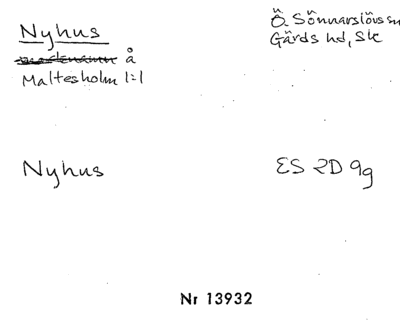 Nyhus
Ö Sönnarslövs sn
Gärds hd, Sk
marknamn å
Maltesholm 1:1
Nyhus
ES 2D 9g
Nr 13932